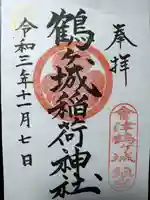 奉拝
鶴ヶ城稲荷神社
令和三年十一月七日